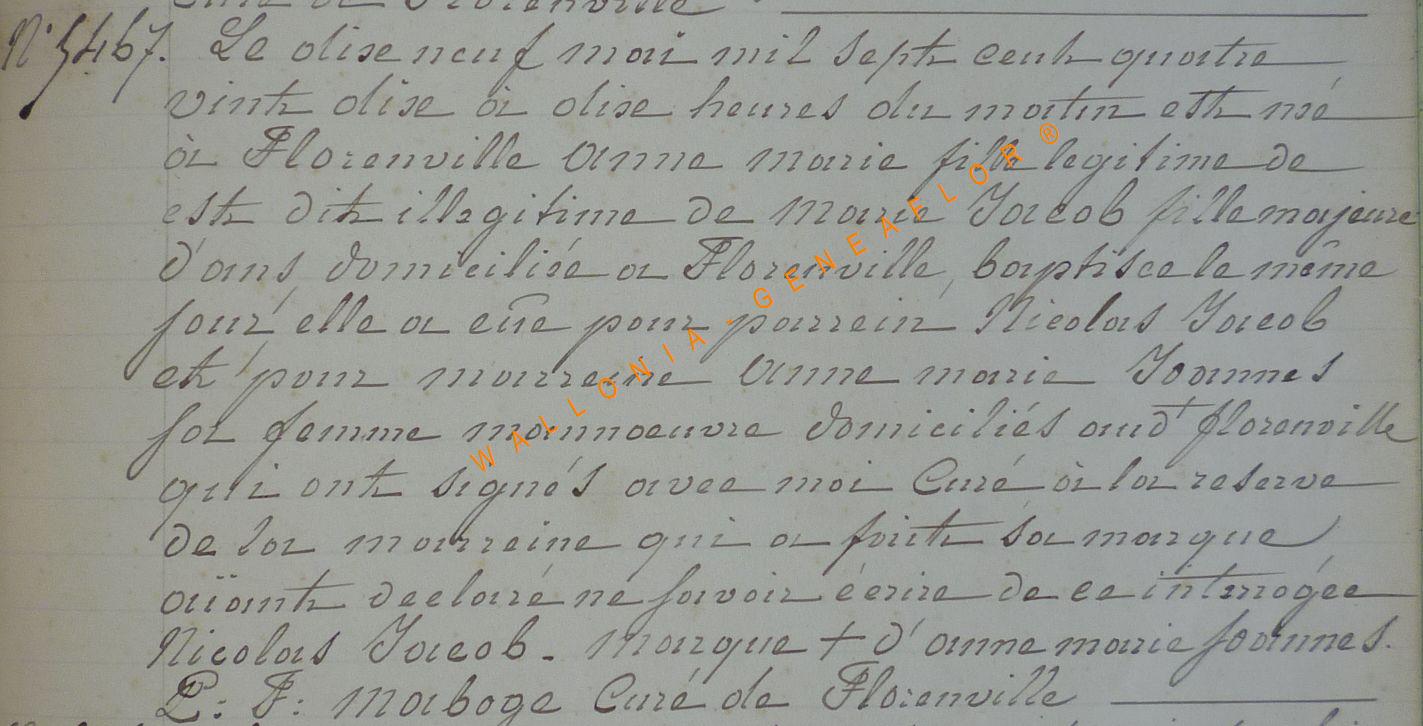 curé de Florenville
N° 5467. Le dise neuf mai mil sept cent quatre
vint dise à dise heures du matin est né
à Florenville anne marie fille legitime de
est dit illegitime de marie Jacob fille majeure
d'ans, domiciliée a Florenville, baptisee le même
jour, elle a eüe pour parrein Nicolas Jacob
et pour marreine anne marie Joannes
sa femme mannoeuvre domiciliés aud^t florenville
qui ont signés avec moi Curé à la reserve
de la marreine qui a fait sa marque
aïant declaré ne savoir écrire de ce interrogée
Nicolas Jacob. marque + d'anne marie Joannes.
P: F: maboge Curé de Florenville
WALLONIA - GENEAFLOR ®